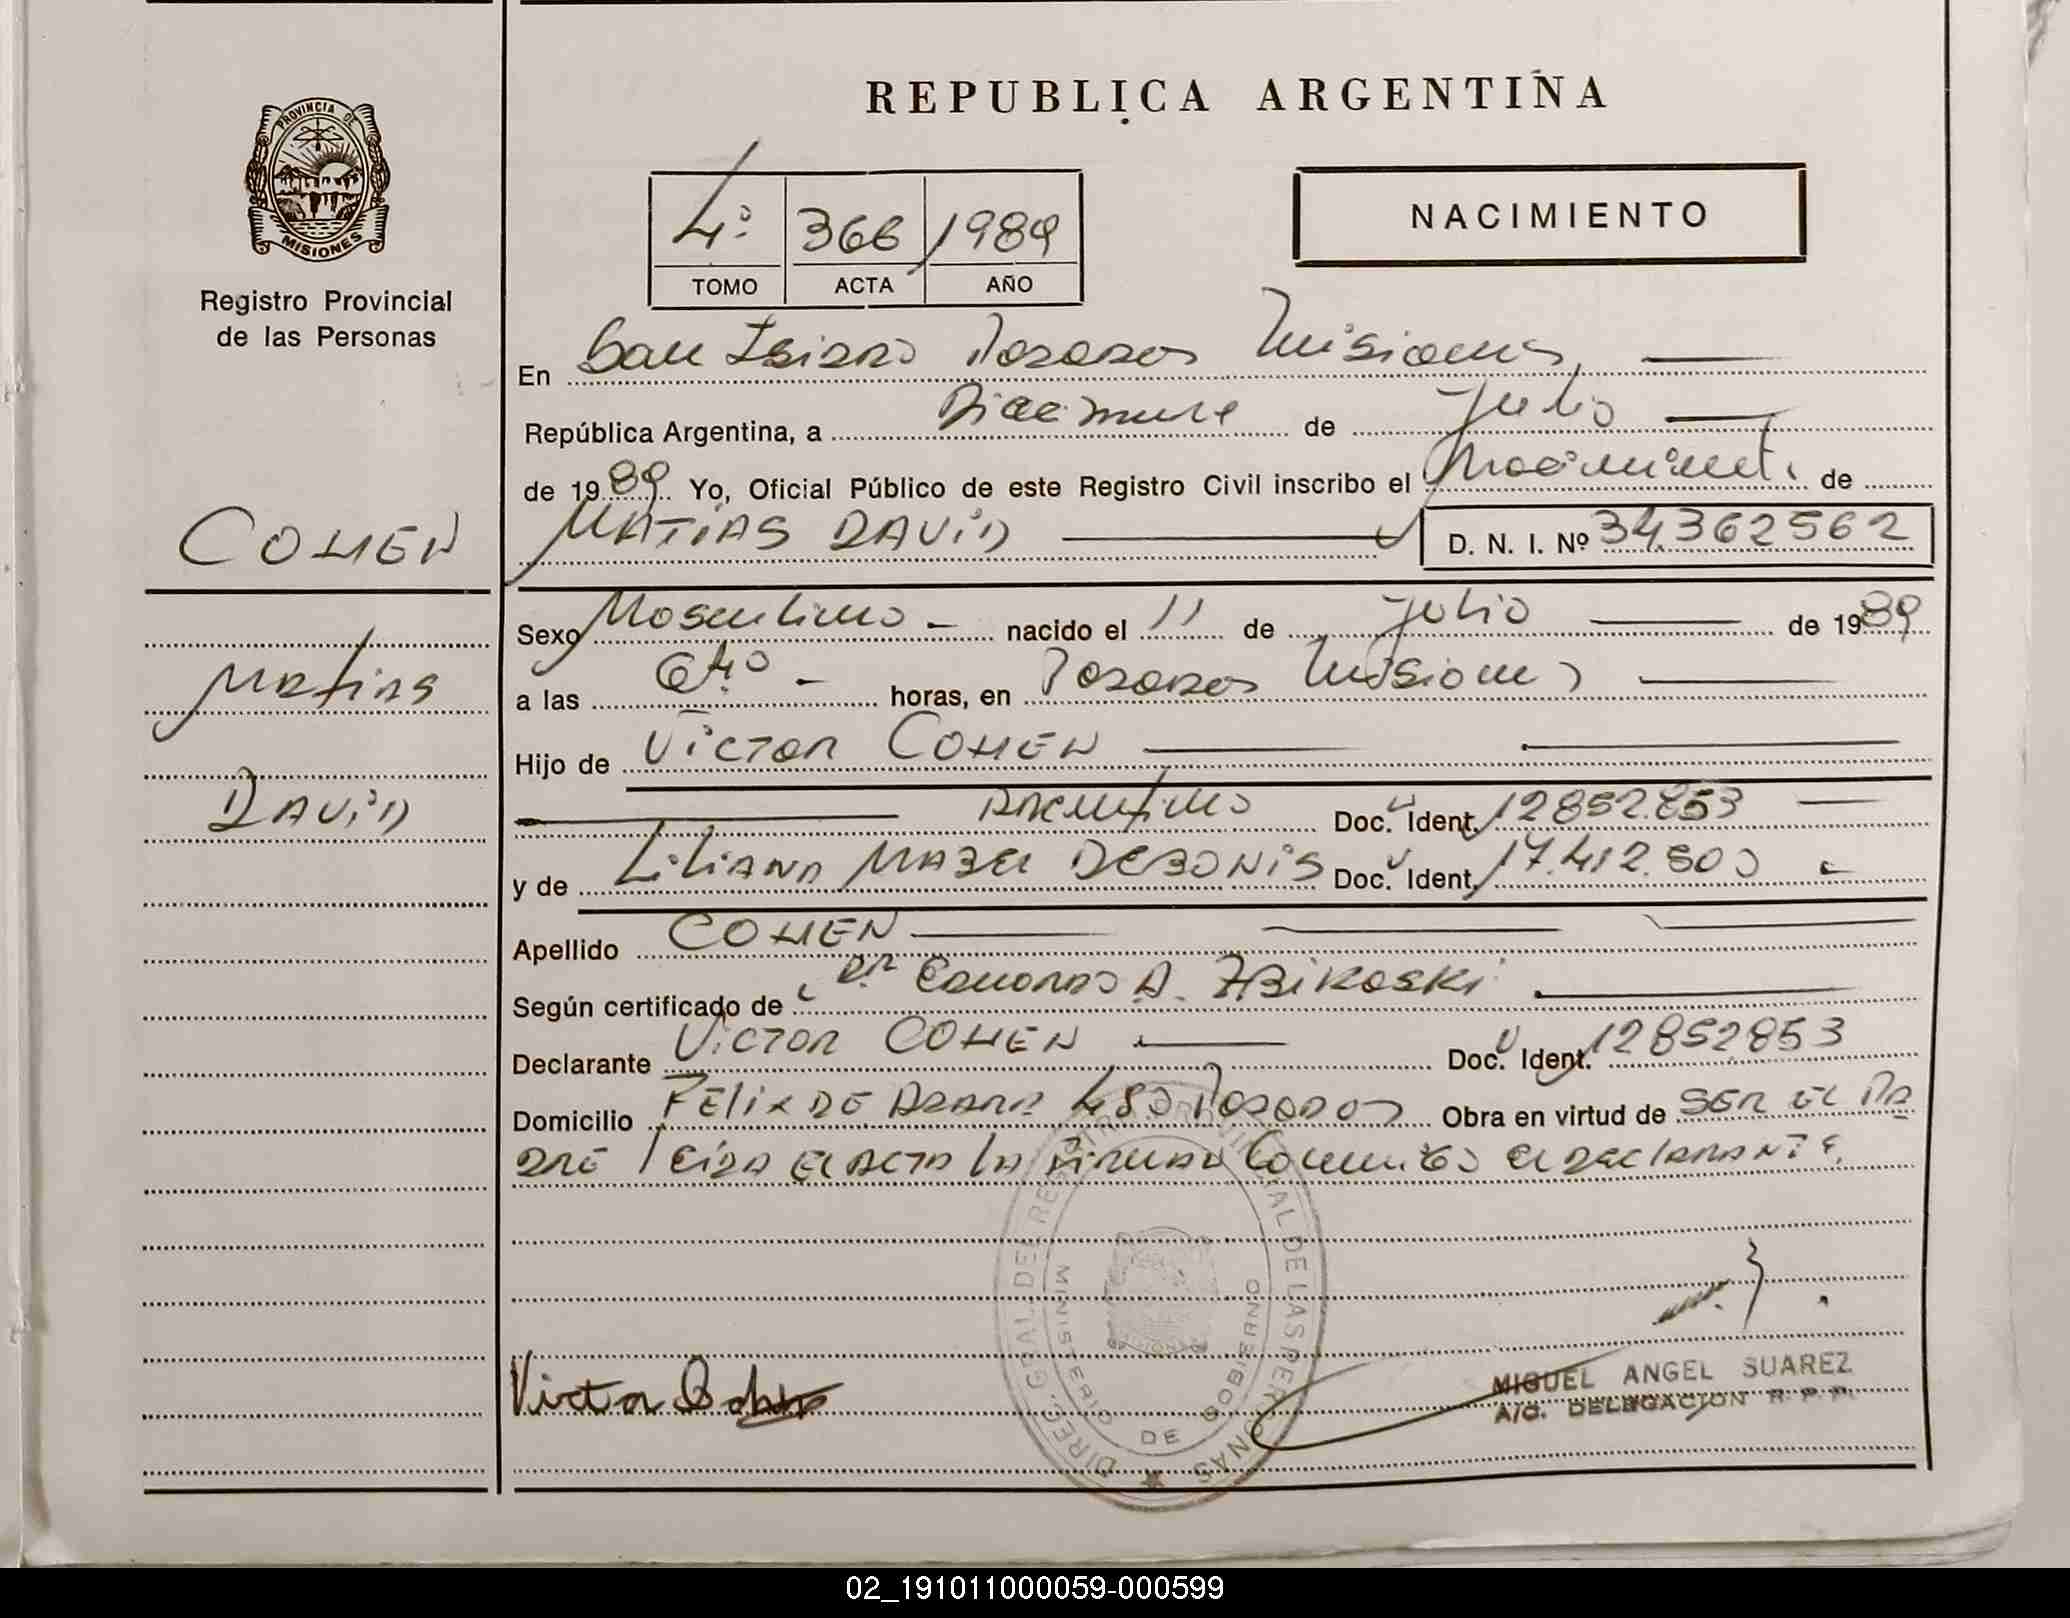 REPUBLICA ARGENTINA
PROVINCIA DE
MISIONES
Registro Provincial
de las Personas
4º 366 1989
TOMO ACTA AÑO
NACIMIENTO
En San Isidro Posadas Misiones
República Argentina, a Diecinueve de Julio
de 1989 Yo, Oficial Público de este Registro Civil inscribo el Nacimiento de
MATIAS DAVID D. N. I. Nº 34.362562
COHEN
Matias
DAVID
Sexo Masculino nacido el 11 de Julio de 1989
a las horas, en Posadas Misiones
Hijo de VICTOR COHEN
Argentino Doc. Ident. 12852.853
y de LILIANA MABEL DEBONIS Doc. Ident. 17.412.500
Apellido COHEN
Según certificado de Dr Eduardo A. ZBIKOSKI
Declarante VICTOR COHEN Doc. Ident. 12852853
Domicilio FELIX DE AZARA 480 Posadas Obra en virtud de SER EL PA
DRE leida el acta la firman Conmigo el declarante.
DIREC. GRAL. DEL REGISTRO PROVINCIAL DE LAS PERSONAS
MINISTERIO DE GOBIERNO
Victor Cohen
MIGUEL ANGEL SUAREZ
A/C. DELEGACION R. P. P.
02_191011000059-000599